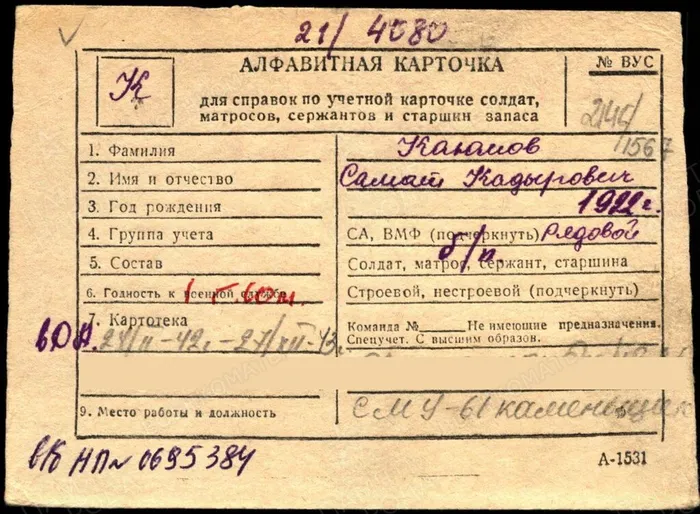 21/ 4080
АЛФАВИТНАЯ КАРТОЧКА
№ ВУС
К
для справок по учетной карточке солдат,
матросов, сержантов и старшин запаса
2145/
1567
1. Фамилия
Каюмов
2. Имя и отчество
Самат Кадырович
3. Год рождения
1922 г.
4. Группа учета
СА, ВМФ (подчеркнуть) Рядовой
б/п
5. Состав
Солдат, матрос, сержант, старшина
6. Годность к военной службе
Строевой, нестроевой (подчеркнуть)
7. Картотека
Команда № Не имеющие предназначения.
Спецучет. С высшим образом.
9. Место работы и должность
СМУ-61 каменщик
вб НП № 0695384
А-1531